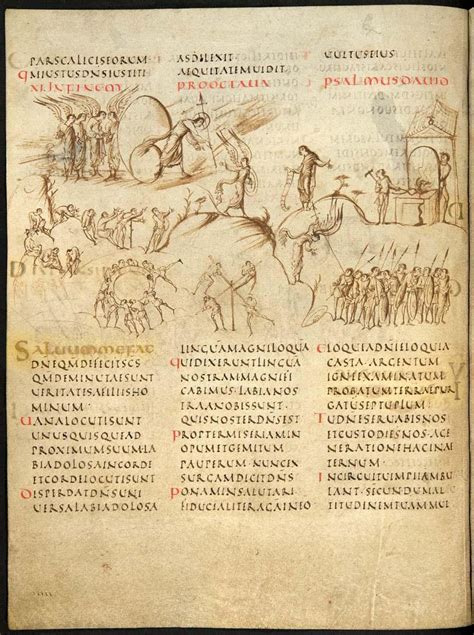 PARSCALICISEORUM
QMIUSTUSDNSIUSTITI
ASDILEXIT
AEQUITATEMUIDIT
UULTUSEIUS
XI INFINEM PROOCTAUA PSALMUSDAUID
SALUUMMEFAC
DNEQMDEFICITSCS
QMDEMINUTAESUNT
UERITATISAFILIISHO
MINUM.
UANALOCUTISUNT
UNUSQUISQUEAD
PROXIMUMSUUMLA
BIADOLOSAINCORDE
ETCORDELOCUTISUNT
DISPERDATDNSUNI
UERSALABIADOLOSA
LINGUAMAGNILOQUA
QUIDIXERUNTLINGUA
NOSTRAMMAGNIFI
CABIMUS LABIANOS
TRAANOBISSUNT
QUISNOSTERDNSEST
PROPTERMISERIAMIN
OPUMETGEMITUM
PAUPERUM NUNCEX
SURGAMDICITDNS
PONAMINSALUTARI
FIDUCIALITERAGAINEO
ELOQUIADNIELOQUIA
CASTA ARGENTUM
IGNIEXAMINATUM
PROBATUMTERRAEPUR
GATUSEPTUPLUM
TUDNESERUABISNOS
ETCUSTODIESNOS AGE
NERATIONEHACINAE
TERNUM
INCIRCUITUIMPIIAMBU
LANT SECUNDUMAL
TITUDINEMTUAMMUL